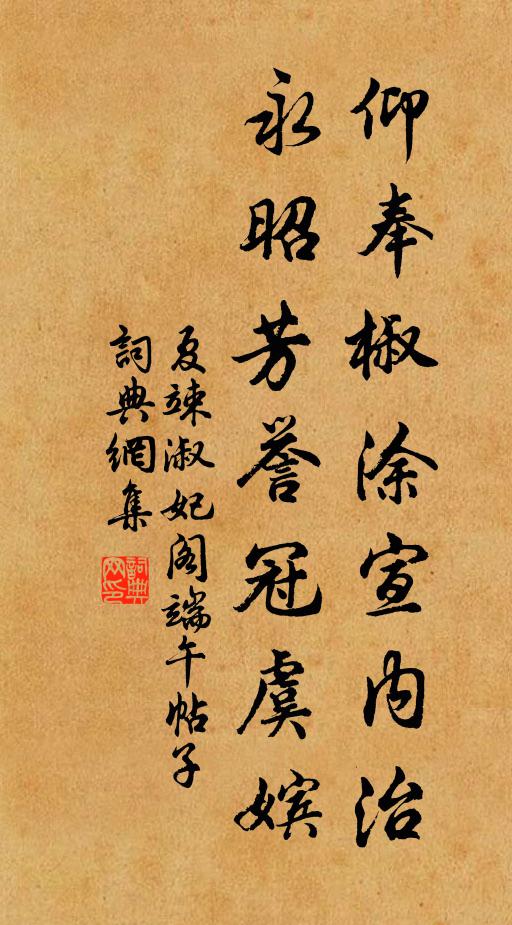 仰奉椒涂宣内治
永昭芳誉冠虞嫔
夏竦淑妃阁端午帖子
詞典網集
詞典網印